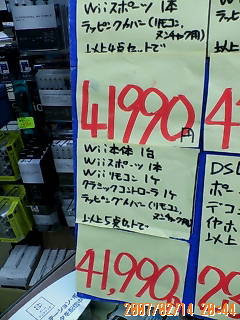 Wiiスポーツ 1本
ラッピングカバー(リモコン、
ヌンチャク用)
以上4点セットで
41990円
Wii本体 1台
Wiiスポーツ 1本
Wiiリモコン 1ケ
クラシックコントローラ 1ケ
ラッピングカバー(リモコン、
ヌンチャク用)
以上5点セットで
41,990
DSL
ポー
デコ
イヤホ
以上
2007/02/14 20:44